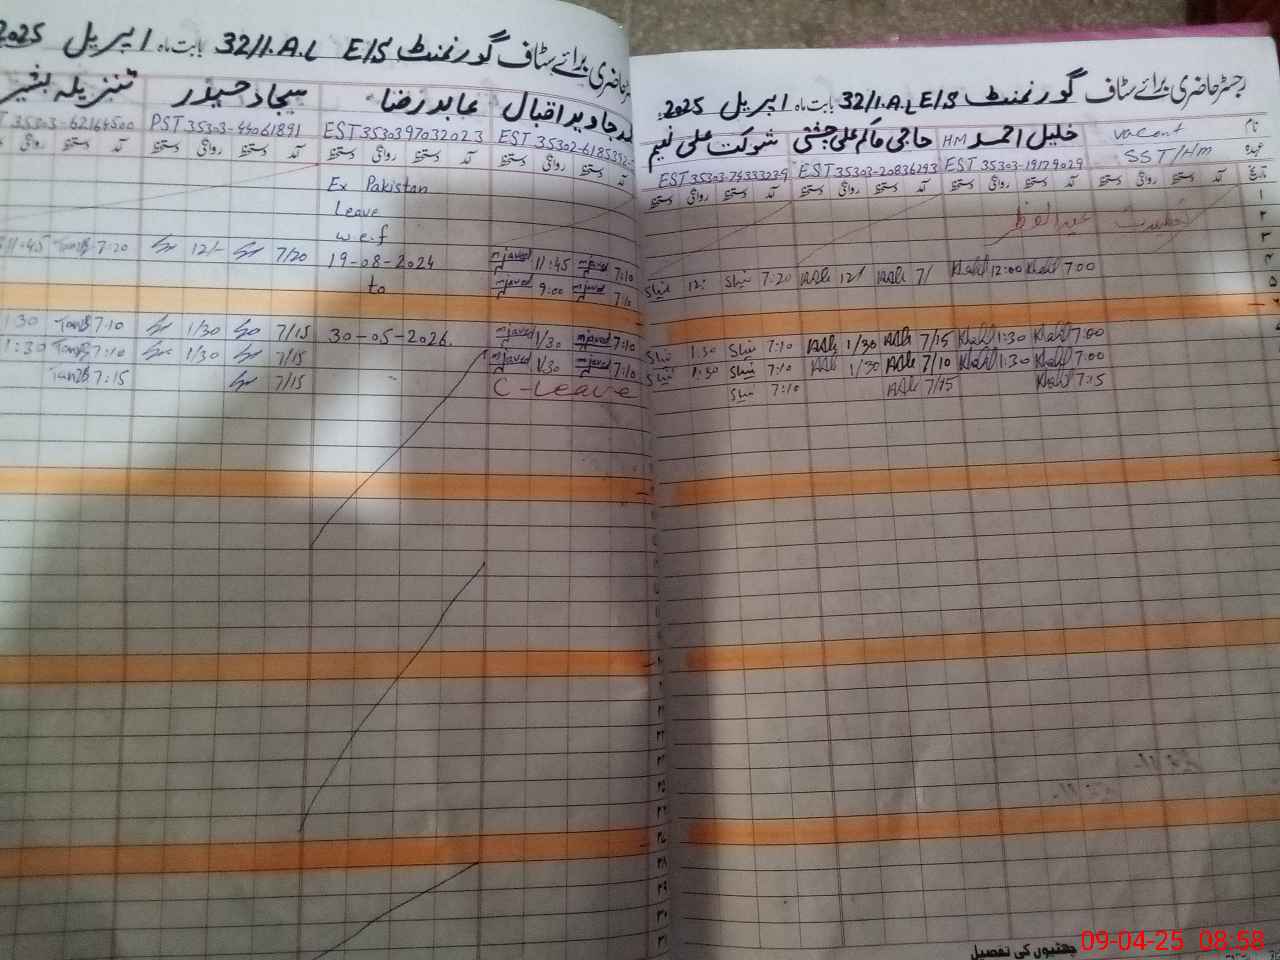 رجسٹر حاضری برائے سٹاف گورنمنٹ 32/1.A.L E/S بابت ماہ اپریل 2025
نام vacant خلیل احمد HM حاجی حاکم علی چشتی شوکت علی نعیم
عہدہ SST/HM EST 35303-19179029 EST 35303-20836293 EST 35303-74333239
تاریخ آمد دستخط روانگی دستخط آمد دستخط روانگی دستخط آمد دستخط روانگی دستخط آمد دستخط روانگی دستخط
۱
۲ عید الفطر
۳
Khalil 12:00 Khalil 7:00 12/ 7/ 12: 7:20
۵
Khalil 1:30 Khalil 7:00 1/30 7/15 1:30 7:10
Khalil 1:30 Khalil 7:00 1/30 7/10 1:30 7:10
Khalil 7:15 7/15 7:10
چھٹیوں کی تفصیل
09-04-25 08:58
حاضری برائے سٹاف گورنمنٹ 32/1.A.L E/S بابت ماہ اپریل 2025
جاوید اقبال عابد رضا سجاد حیدر تنزیلہ بشیر
EST 35302-6185392 EST 3530397032023 PST 35303-44061891 35303-62164500
آمد دستخط روانگی دستخط آمد دستخط روانگی دستخط آمد دستخط روانگی دستخط آمد دستخط روانگی
Ex Pakistan
Leave
w.e.f
mjaved 11:45 mjaved 7:10 19-08-2024 12/- 7/20 11:45 7:20
mjaved 9:00 mjaved 7:10 to
mjaved 1/30 mjaved 7:10 30-05-2026. 1/30 7/15 1:30 7:10
mjaved 1/30 mjaved 7:10 1/30 7/15 1:30 7:10
C-Leave 7/15 7:15
۲۸
۲۹
۳۰
۳۱